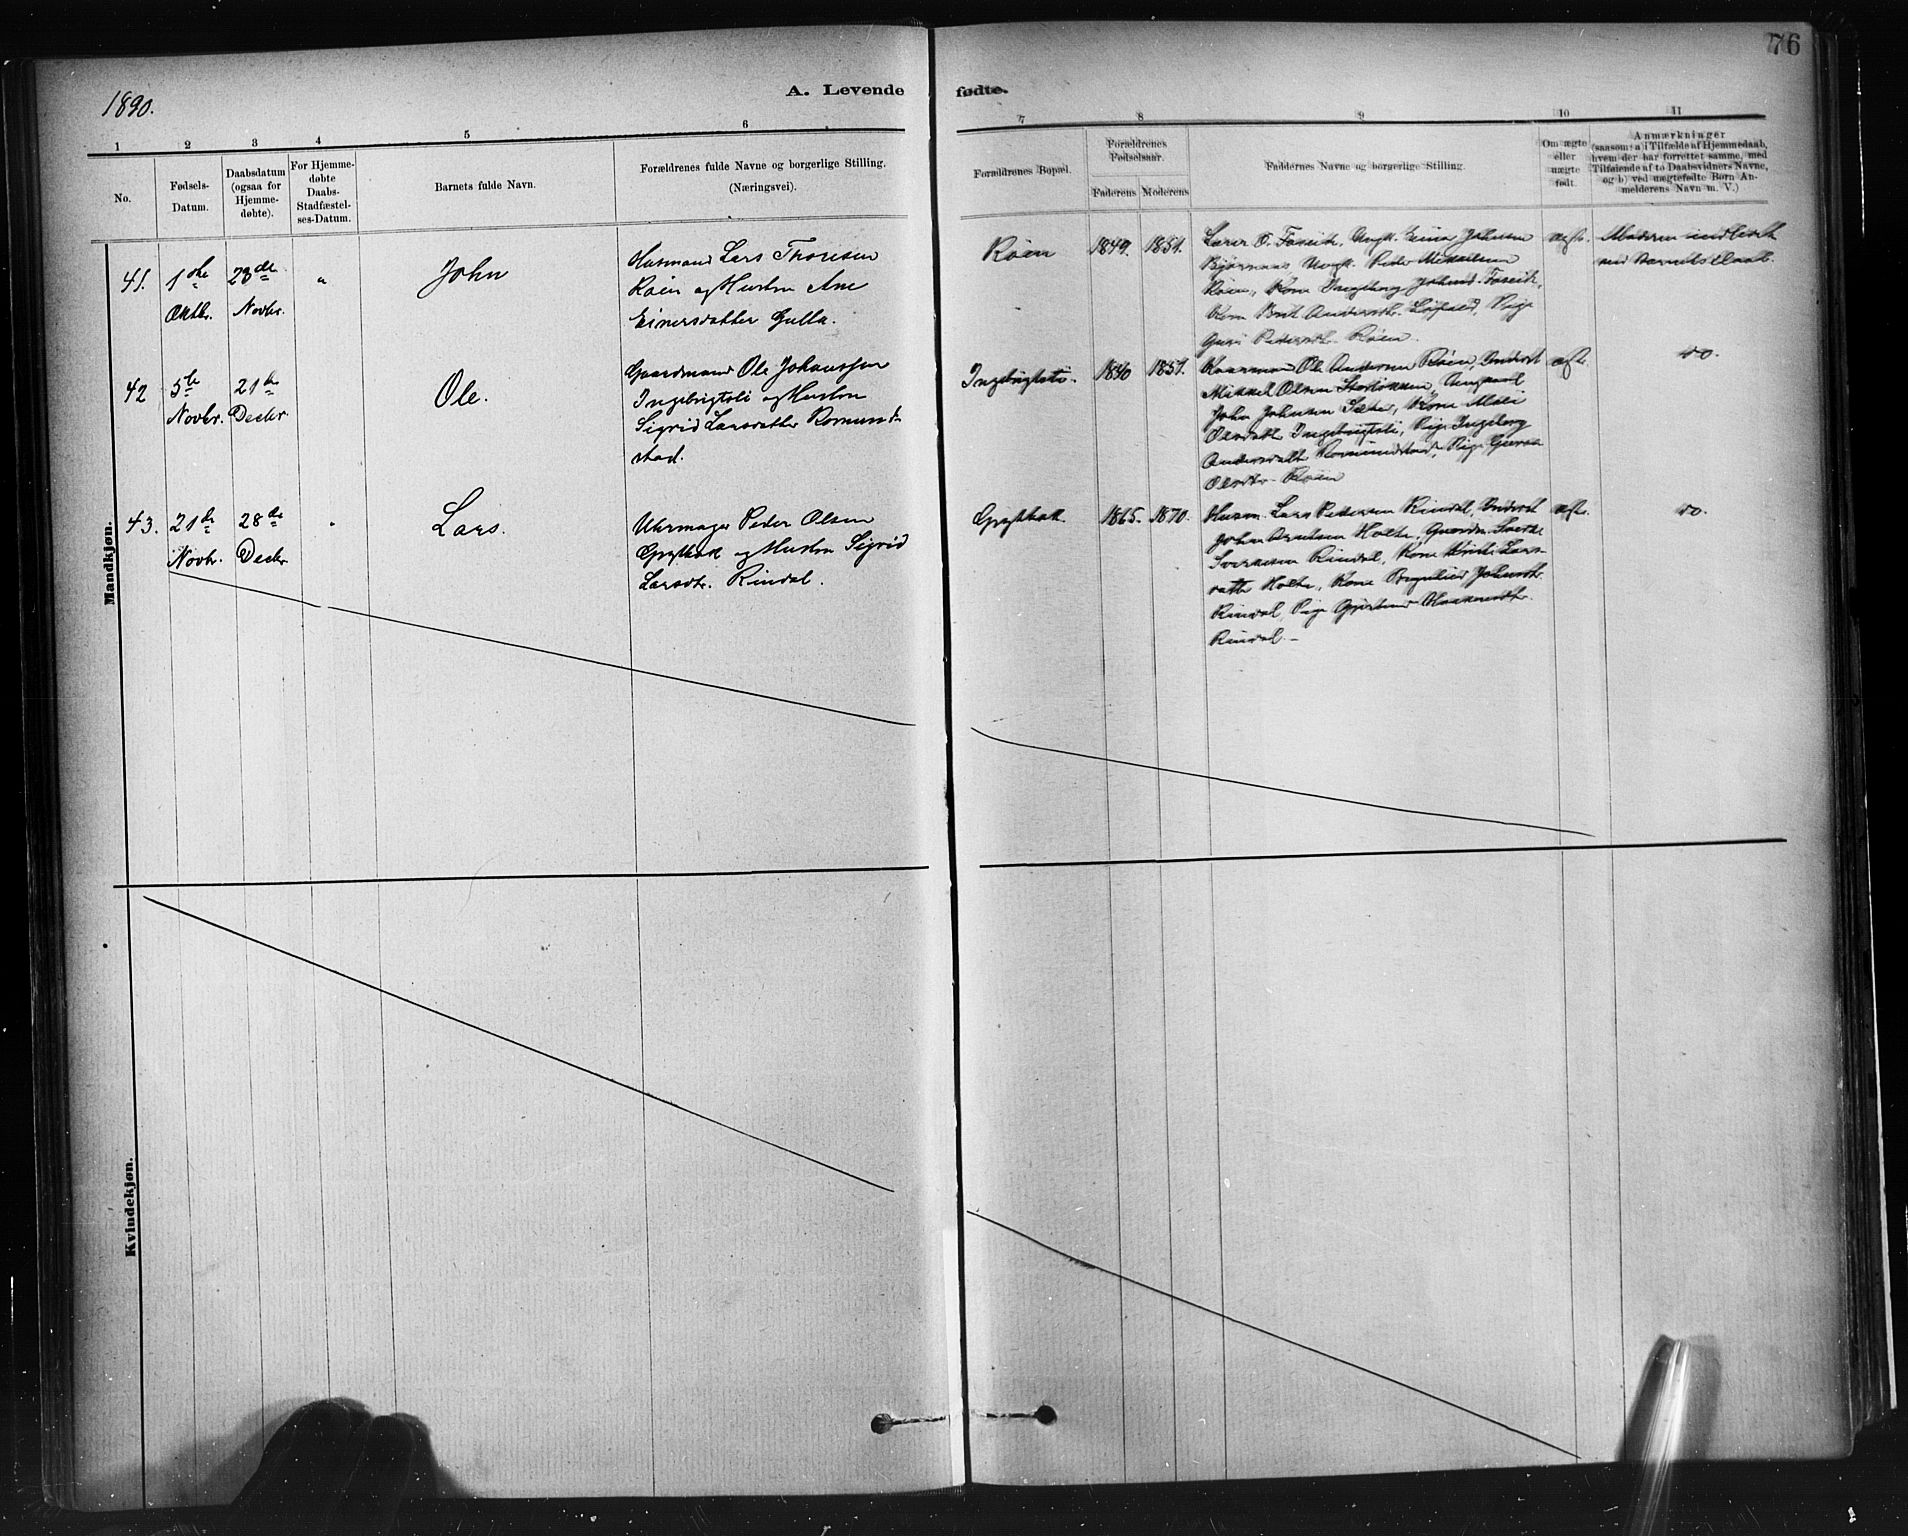 76
1890.
A. Levende fødte.
1 2 3 4 5 6 7 8 9 10 11
No.
Fødsels-
Datum.
Daabsdatum
(ogsaa for
Hjemme-
døbte).
For Hjemme-
døbte
Daabs-
Stadfæstel-
ses-Datum.
Barnets fulde Navn.
Forældrenes fulde Navne og borgerlige Stilling.
(Næringsvei).
Forældrenes Bopæl.
Forældrenes
Fødselsaar.
Faderens Moderens
Faddernes Navne og borgerlige Stilling.
Om ægte
eller
uægte
født.
Anmærkninger
(saasom: a i Tilfælde af Hjemmedaab,
hvem der har forrettet samme, med
Tilføiende af to Daabsvidners Navne,
og b) ved uægtefødte Børn An-
melderens Navn m. V.)
Mandkjøn.
41.
1ste
Oktbr.
23de
Novbr.
"
John
Husmand Lars Thoresen
Røen og Hustru Ane
Einersdatter Gulla.
Røen
1849. 1851.
Lærer O. Fosvik, Ungk. Einar Johnsen
Bjørnaas Ungk. Peder Mikkelsen
Røen, Kone Ingeborg Johnsd. Fosvik,
Kone Brit Andersdtr. Løfald, Pige
Guri Pedersdtr. Røen.
ægte.
Moderen indledet
ved Barnets Daab.
42
5te
Novbr.
21de
Decbr
Ole.
Gaardmand Ole Johansen
Ingebrigtsli og Hustru
Sigrid Larsdatter Romund-
stad.
Ingebrigtsli.
1840 1851.
Ole Andersen Røen, Inderst
Mikkel Olsen
John Johnsen Sæter, Kone Mali
Olsdatter Ingebrigtsli, Pige Ingeborg
Andersdatt Romundstad, Pige Guroa
Olsdtr. Røen
ægte.
do.
43.
21de
Novbr.
28de
Decbr
"
Lars.
Uhrmager Peder Olsen
Grytbak og Hustru Sigrid
Larsdtr. Rindal.
Grytbak.
1865. 1870.
Husm. Lars Pedersen Rindal, Inderst
John Arntsen Holte, Gaardm. Sverke
Sversesen Rindal, Kone Brit Lars-
datter Holte, Kone Ingeleiv Johnsdtr.
Rindal, Pige Gjertrud Haakensdtr.
Rindal. –
ægte.
do.
Kvindekjøn.